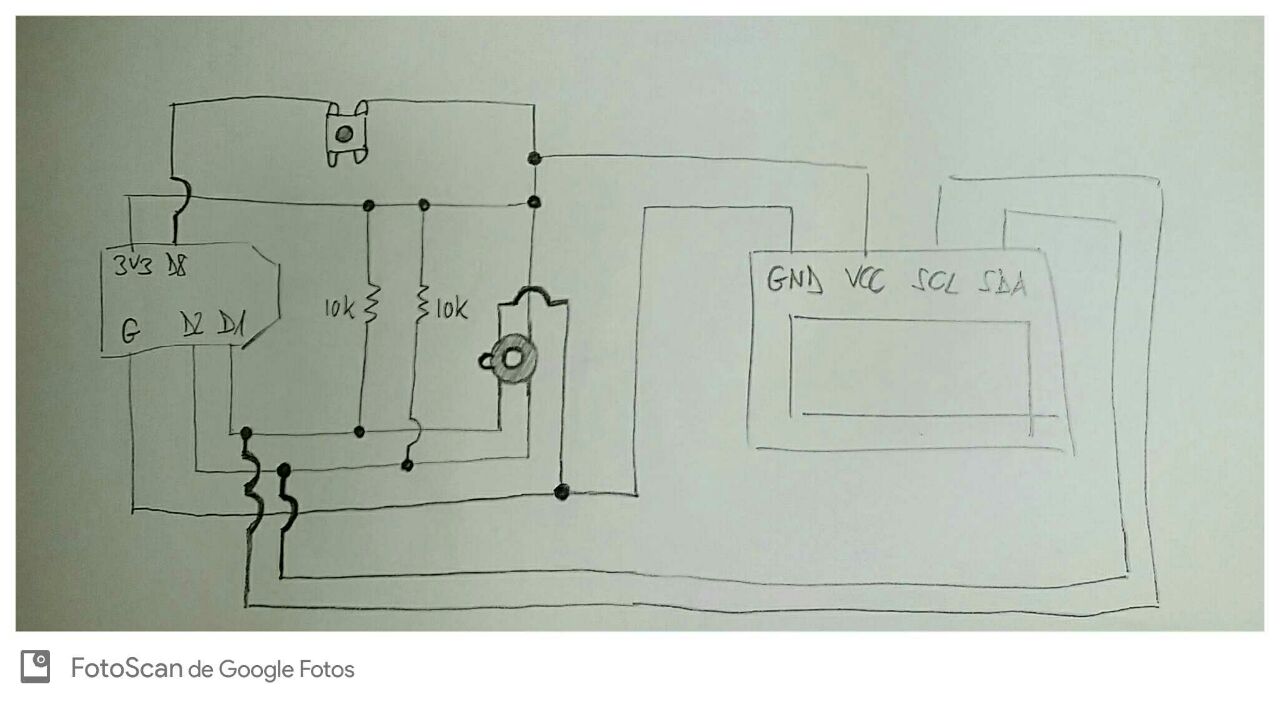 3V3 D8
G D2 D1
10k 10k
GND VCC SCL SDA
FotoScan de Google Fotos